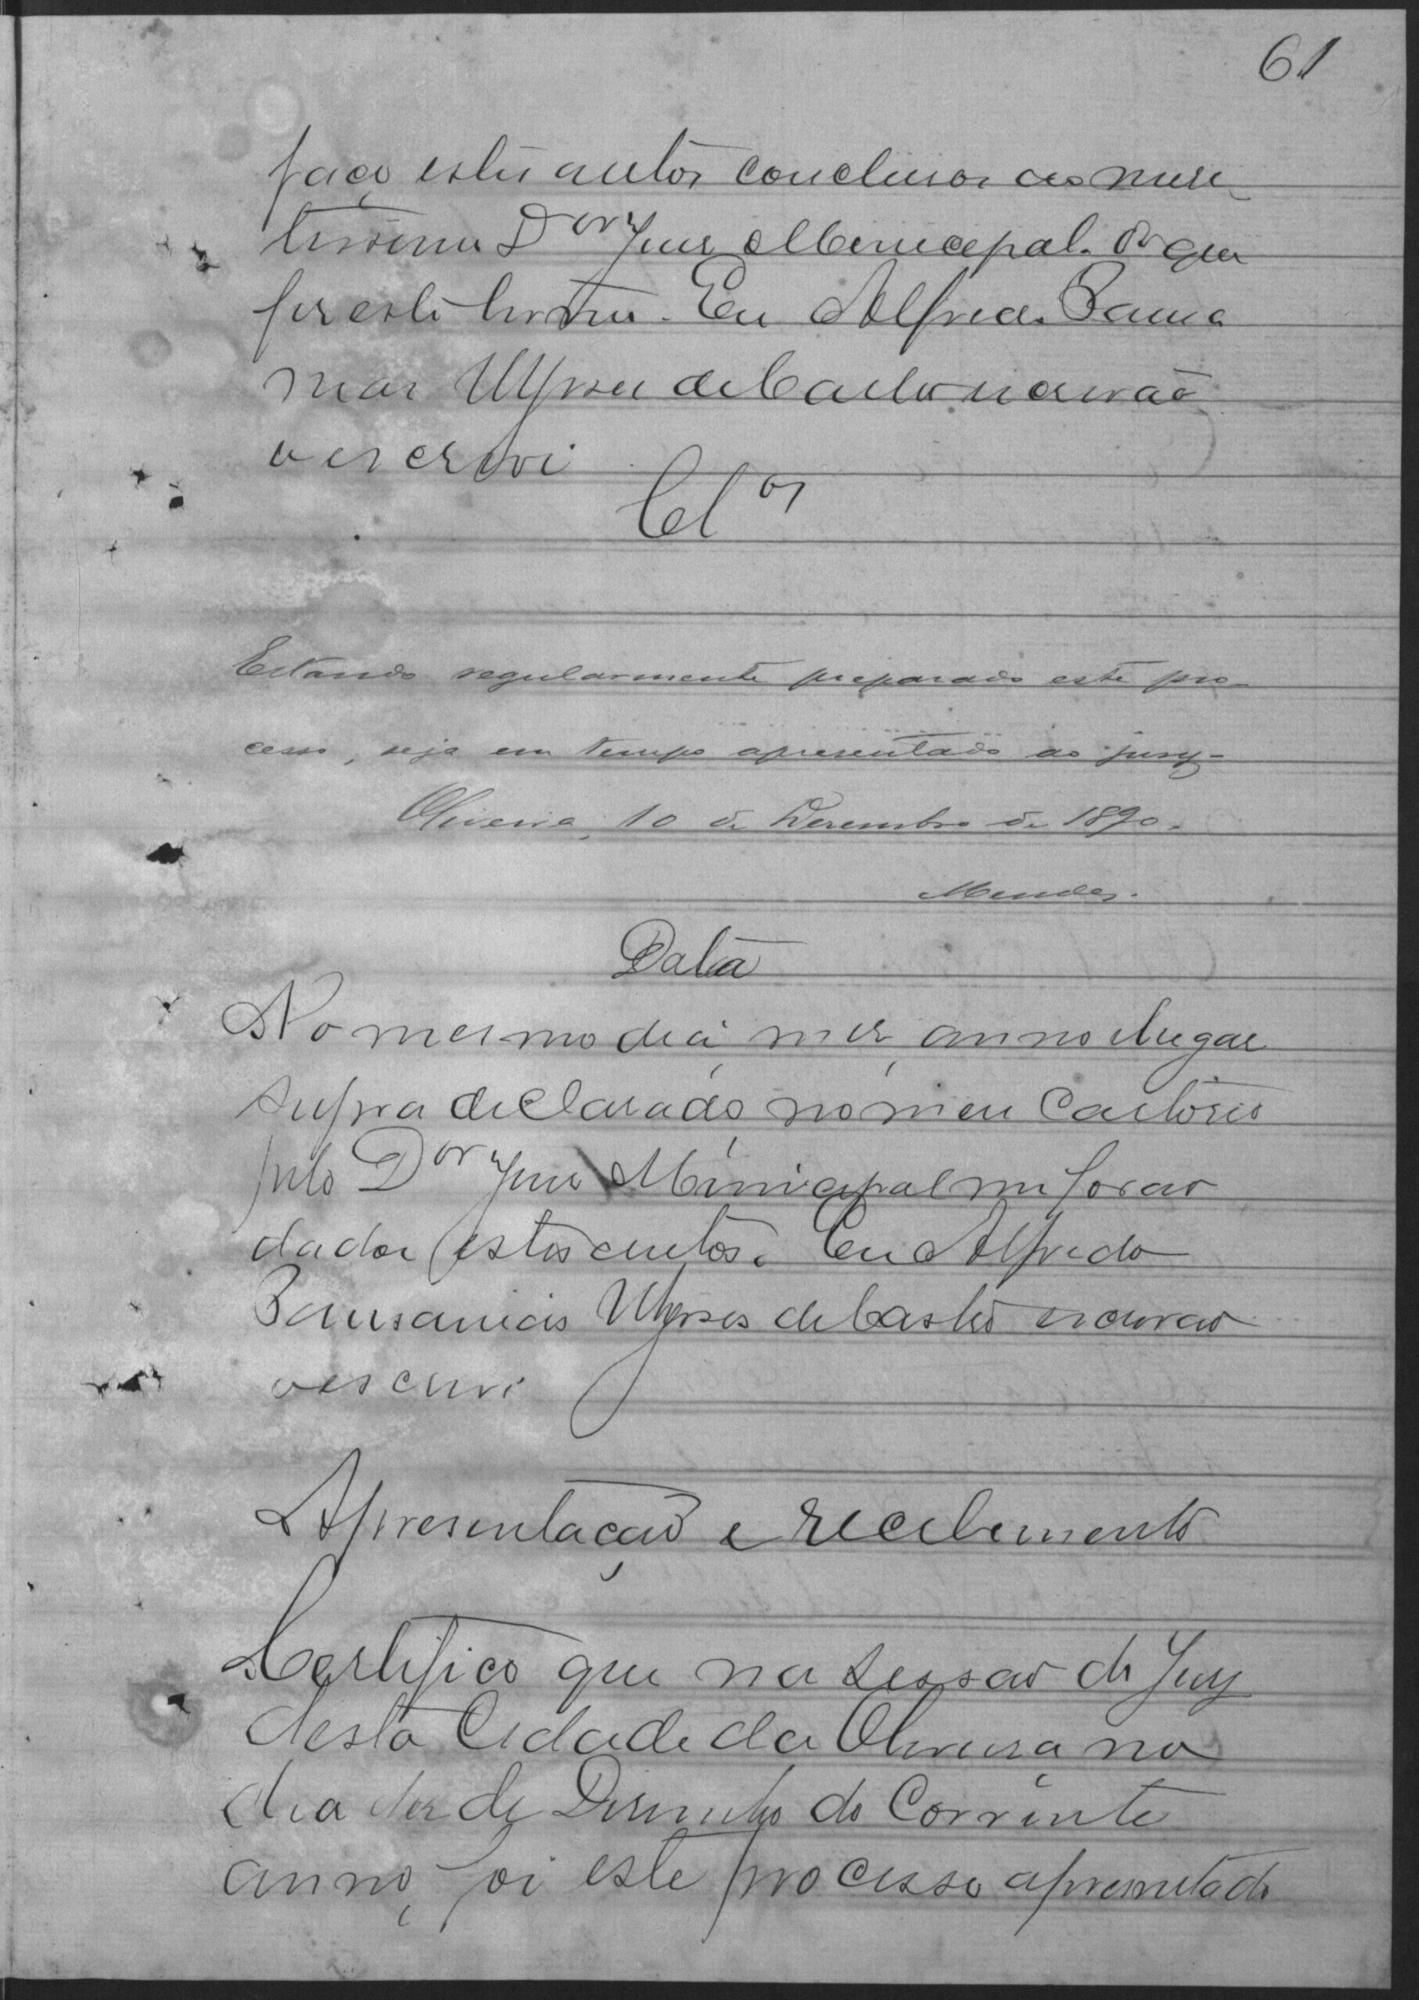 61
faço estes autos conclusos ao mere-
tissimo Dor Juis Municepal. Do que
fis este termo. Eu Alfredo Pausa
nias Ulysses de Castro escrivão
o escrevi
Clos
Estando regularmente preparado este pro-
cesso, seja em tempo apresentado ao jury.
Oliveira, 10 de Dezembro de 1890.
Mendes.
Data
No mesmo dia, mes, anno e lugar
supra declarado, no meu Cartorio
pelo Dor Juis Municipal me forão
dados estes autos. Eu Alfredo
Pausanias Ulysses de Castro escrivão
o escrevi
Apresentação e recebimento
Certifico que na sessão do Jury
desta Cidade da Oliveira, no
dia des de Desembro do Corrente
anno, foi este processo apresentado